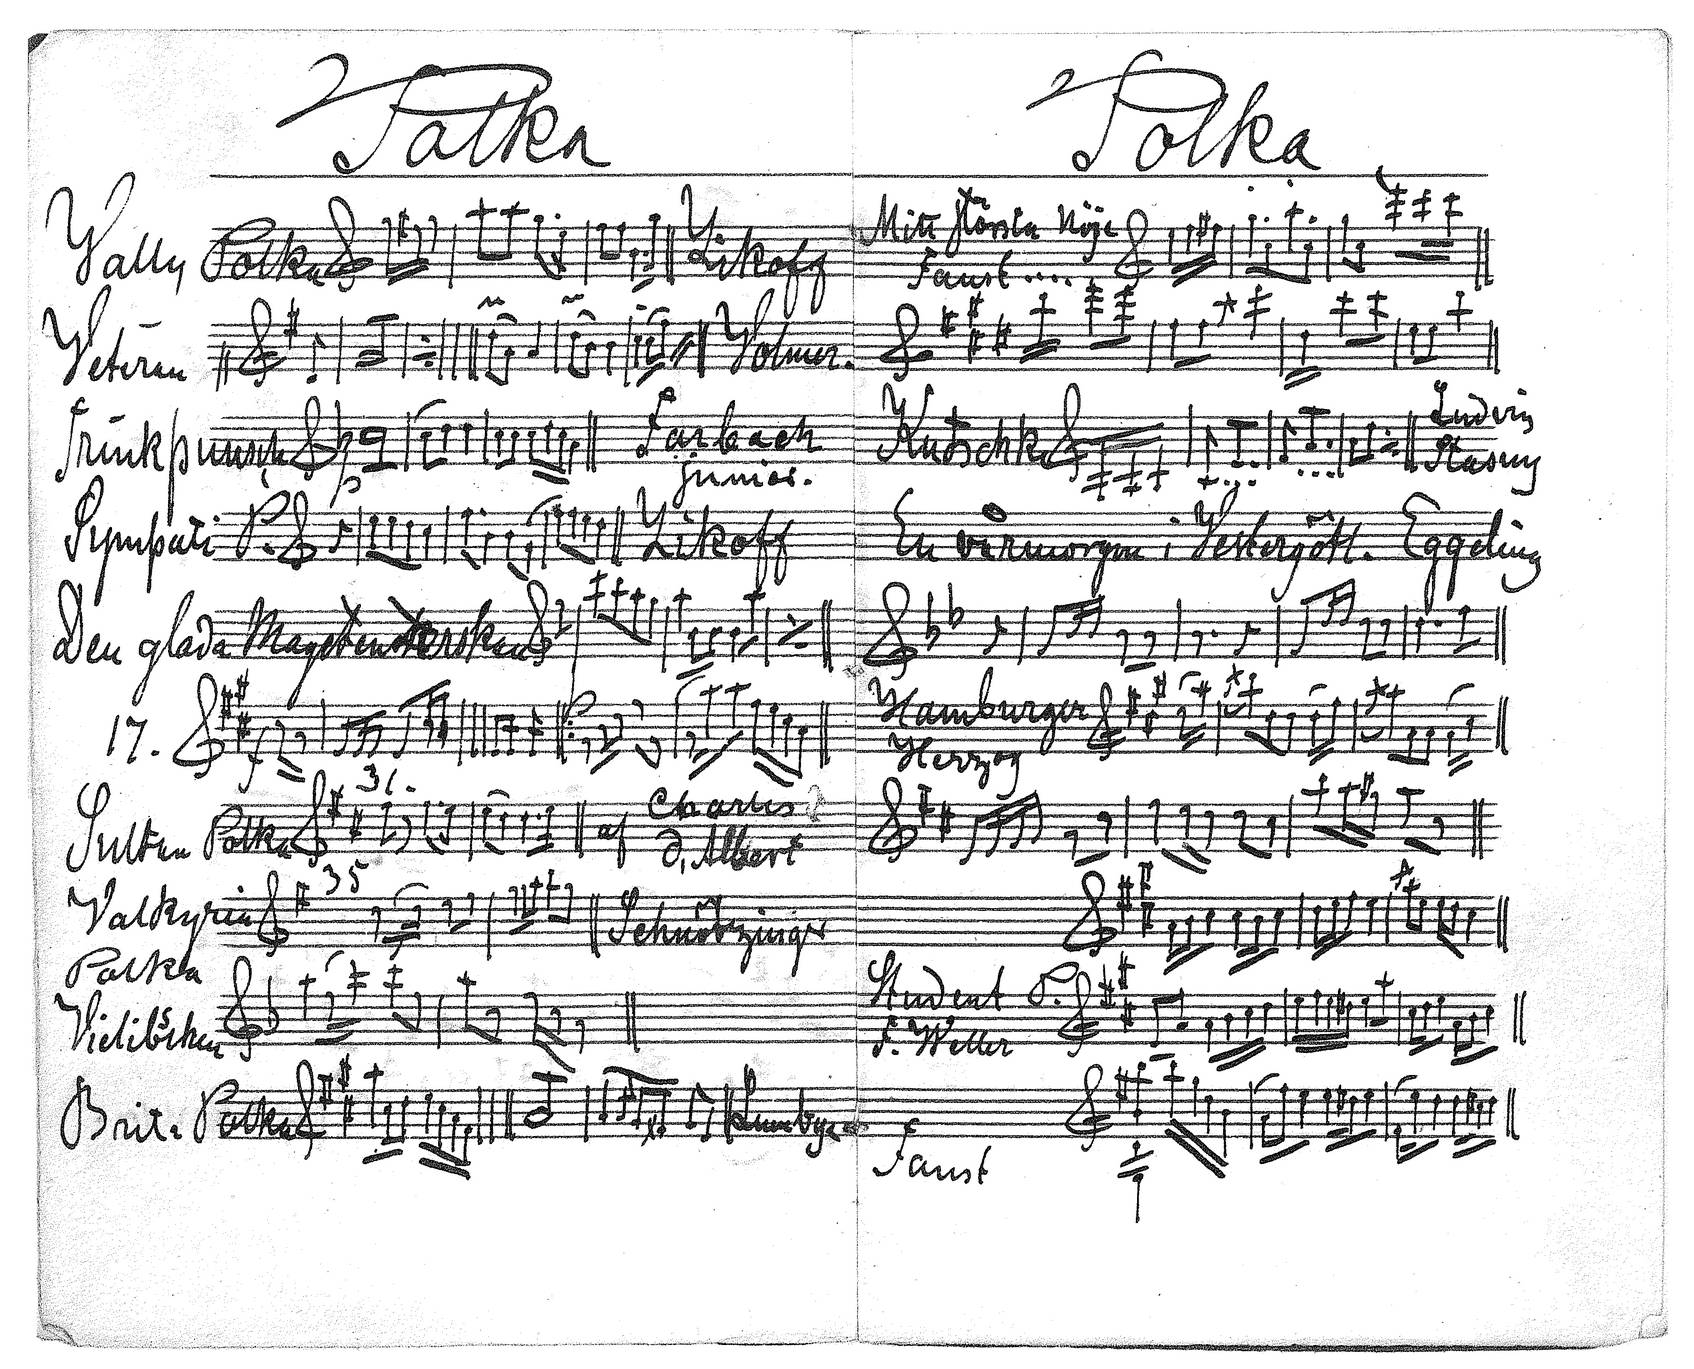 Polka
Wally Polka Zikoff
Veteran Volmer.
Trinkpunsch Farbach
junior.
Sympati P. Zikoff
Den glada
17.
Sultan Polka 31. af Charles
d, Albert
Valkyrin 35
Polka
Brita Polka Lumbye
Polka
Mitt största Nöje
Faust ....
Kutschke Ludvig
Stasny
En vårmorgon i Vestergötl. Eggeling
Hamburger
Herzog
Student P.
F. Weller
Faust